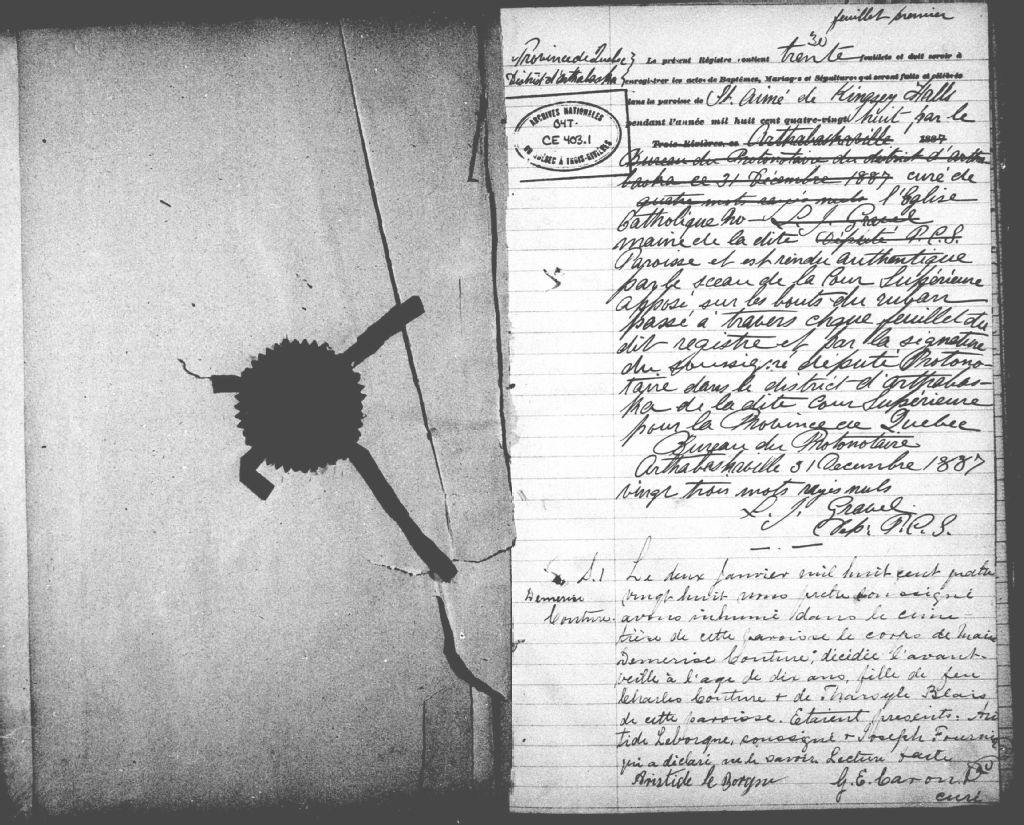 feuillet premier
Province de Québec } Le présent Régistre contient 30 trente feuillets et doit servir à
District d'Arthabaska } enregistrer les actes de Baptêmes, Mariages et Sépultures qui seront faits et célébrés
dans la paroisse de St. Aimé de Kingsey Falls
pendant l'année mil huit cent quatre-vingt huit par le
ARCHIVES NATIONALES
04T-
CE 403.1
DU QUÉBEC À TROIS-RIVIÈRES
Trois-Rivières, ce Arthabaskaville 1887
Bureau du Protonotaire du district d'Artha
baska ce 31 Décembre 1887 curé de
quatre mots nuls l'Eglise
Catholique Ro- L. J. Gravel
maine de la dite Député P.C.S.
Paroisse et est rendu authentique
par le sceau de la Cour Supérieure
apposé sur les bouts du ruban
passé à travers chque feuillet du
dit registre et par la signature
du soussigné député Protono-
taire dans le district d'Arthabas-
ka de la dite Cour Supérieure
pour la Province de Quebec
Bureau du Protonotaire
Arthabaskaville 31 Decembre 1887
vingt trois mots rayés nuls
L. J. Gravel
Dep. P.C.S.
S.1 Le deux Janvier mil huit cent quatre
Demerise vingt huit nous pretre soussigné
Couture. avons inhumé dans le cime-
tière de cette paroisse le corps de Marie
Demerise Couture, décidée l'avant-
veille à l'age de dix ans, fille de feu
Charles Couture + de Tharsyle Blais
de cette paroisse. Etaient presents. Aris
tide Leborgne, soussigné + Joseph Fournier
qui a déclaré ne le savoir. Lecture faite
Aristide le Borgne G. E. Caron Ptre
curé